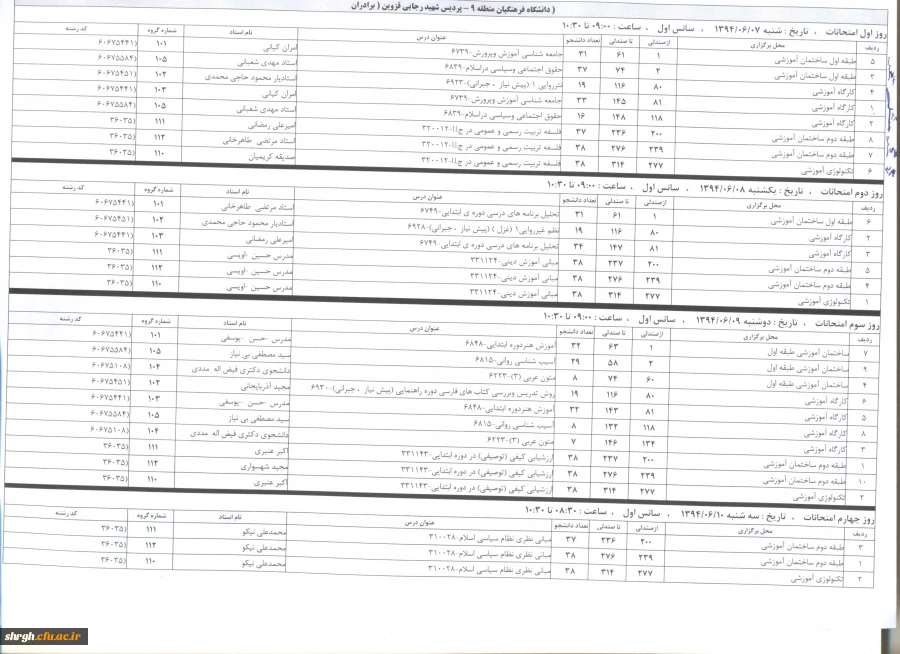 ( دانشگاه فرهنگیان منطقه ۹ - پردیس شهید رجایی قزوین ( برادران
روز اول امتحانات ، تاریخ : شنبه ۱۳۹۴/۰۶/۰۷ ، سانس اول ، ساعت : ۰۹:۰۰ تا ۱۰:۳۰
ردیف محل برگزاری ازصندلی تا صندلی تعداد دانشجو عنوان درس نام استاد شماره گروه کد رشته
۵ طبقه اول ساختمان آموزشی ۱ ۶۱ ۳۱ جامعه شناسی آموزش وپرورش-۶۷۳۹ امران کیانی ۱۰۱ ۶۰۶۷۵۴۴۱)
۳ طبقه اول ساختمان آموزشی ۲ ۷۴ ۳۷ حقوق اجتماعی وسیاسی دراسلام-۶۸۳۹ استاد مهدی شعبانی ۱۰۵ ۶۰۶۷۵۵۸۴)
۴ کارگاه آموزشی ۸۰ ۱۱۶ ۱۹ نثرروایی ۱ (پیش نیاز ، جبرانی)-۶۹۲۳ استادیار محمود حاجی محمدی ۱۰۲ ۶۰۶۷۵۴۵۱)
۱ کارگاه آموزشی ۸۱ ۱۴۵ ۳۳ جامعه شناسی آموزش وپرورش-۶۷۳۹ امران کیانی ۱۰۳ ۶۰۶۷۵۴۴۱)
۲ کارگاه آموزشی ۱۱۸ ۱۴۸ ۱۶ حقوق اجتماعی وسیاسی دراسلام-۶۸۳۹ استاد مهدی شعبانی ۱۰۵ ۶۰۶۷۵۵۸۴)
۸ طبقه دوم ساختمان آموزشی ۲۰۰ ۲۳۶ ۳۷ فلسفه تربیت رسمی و عمومی در ج.ا.ا-۳۲۰۰۱۲ امیرعلی رمضانی ۱۱۱ ۳۶۰۳۵)
۷ طبقه دوم ساختمان آموزشی ۲۳۹ ۲۷۶ ۳۸ فلسفه تربیت رسمی و عمومی در ج.ا.ا-۳۲۰۰۱۲ استاد مرتضی طاهرخانی ۱۱۲ ۳۶۰۳۵)
۶ تکنولوژی آموزشی ۲۷۷ ۳۱۴ ۳۸ فلسفه تربیت رسمی و عمومی در ج.ا.ا-۳۲۰۰۱۲ صدیقه کریمیان ۱۱۰ ۳۶۰۳۵)
روز دوم امتحانات ، تاریخ : یکشنبه ۱۳۹۴/۰۶/۰۸ ، سانس اول ، ساعت : ۰۹:۰۰ تا ۱۰:۳۰
ردیف محل برگزاری ازصندلی تا صندلی تعداد دانشجو عنوان درس نام استاد شماره گروه کد رشته
۶ طبقه اول ساختمان آموزشی ۱ ۶۱ ۳۱ تحلیل برنامه های درسی دوره ی ابتدایی-۶۷۴۹ استاد مرتضی طاهرخانی ۱۰۱ ۶۰۶۷۵۴۴۱)
۲ کارگاه آموزشی ۸۰ ۱۱۶ ۱۹ نظم غیرروایی۱ (غزل ) (پیش نیاز ، جبرانی)-۶۹۲۸ استادیار محمود حاجی محمدی ۱۰۲ ۶۰۶۷۵۴۵۱)
۳ کارگاه آموزشی ۸۱ ۱۴۷ ۳۴ تحلیل برنامه های درسی دوره ی ابتدایی-۶۷۴۹ امیرعلی رمضانی ۱۰۳ ۶۰۶۷۵۴۴۱)
۵ طبقه دوم ساختمان آموزشی ۲۰۰ ۲۳۷ ۳۸ مبانی آموزش دینی-۳۳۱۱۲۴ مدرس حسین -اویسی ۱۱۱ ۳۶۰۳۵)
۴ طبقه دوم ساختمان آموزشی ۲۳۹ ۲۷۶ ۳۸ مبانی آموزش دینی-۳۳۱۱۲۴ مدرس حسین -اویسی ۱۱۲ ۳۶۰۳۵)
۱ تکنولوژی آموزشی ۲۷۷ ۳۱۴ ۳۸ مبانی آموزش دینی-۳۳۱۱۲۴ مدرس حسین -اویسی ۱۱۰ ۳۶۰۳۵)
روز سوم امتحانات ، تاریخ : دوشنبه ۱۳۹۴/۰۶/۰۹ ، سانس اول ، ساعت : ۰۹:۰۰ تا ۱۰:۳۰
ردیف محل برگزاری ازصندلی تا صندلی تعداد دانشجو عنوان درس نام استاد شماره گروه کد رشته
۷ ساختمان آموزشی طبقه اول ۱ ۶۳ ۳۲ آموزش هنردوره ابتدایی-۶۸۴۸ مدرس -حسن -یوسفی ۱۰۱ ۶۰۶۷۵۴۴۱)
۹ ساختمان آموزشی طبقه اول ۲ ۵۸ ۲۹ آسیب شناسی روانی-۶۸۱۵ سید مصطفی بی نیاز ۱۰۵ ۶۰۶۷۵۵۸۴)
۴ ساختمان آموزشی طبقه اول ۶۰ ۷۴ ۸ متون عربی (۳)-۶۲۲۳ دانشجوی دکتری فیض اله مددی ۱۰۴ ۶۰۶۷۵۱۰۸)
۶ کارگاه آموزشی ۸۰ ۱۱۶ ۱۹ روش تدریس وبررسی کتاب های فارسی دوره راهنمایی (پیش نیاز ، جبرانی)-۶۹۳۰ مجید آذربایجانی ۱۰۲ ۶۰۶۷۵۴۵۱)
۵ کارگاه آموزشی ۸۱ ۱۴۳ ۳۲ آموزش هنردوره ابتدایی-۶۸۴۸ مدرس -حسن -یوسفی ۱۰۳ ۶۰۶۷۵۴۴۱)
۸ کارگاه آموزشی ۱۱۸ ۱۳۲ ۸ آسیب شناسی روانی-۶۸۱۵ سید مصطفی بی نیاز ۱۰۵ ۶۰۶۷۵۵۸۴)
۳ کارگاه آموزشی ۱۳۴ ۱۴۶ ۷ متون عربی (۳)-۶۲۲۳ دانشجوی دکتری فیض اله مددی ۱۰۴ ۶۰۶۷۵۱۰۸)
۱ طبقه دوم ساختمان آموزشی ۲۰۰ ۲۳۷ ۳۸ ارزشیابی کیفی (توصیفی) در دوره ابتدایی-۳۳۱۱۴۳ اکبر عنبری ۱۱۱ ۳۶۰۳۵)
۱۰ طبقه دوم ساختمان آموزشی ۲۳۹ ۲۷۶ ۳۸ ارزشیابی کیفی (توصیفی) در دوره ابتدایی-۳۳۱۱۴۳ مجید شهسواری ۱۱۲ ۳۶۰۳۵)
۲ تکنولوژی آموزشی ۲۷۷ ۳۱۴ ۳۸ ارزشیابی کیفی (توصیفی) در دوره ابتدایی-۳۳۱۱۴۳ اکبر عنبری ۱۱۰ ۳۶۰۳۵)
روز چهارم امتحانات ، تاریخ : سه شنبه ۱۳۹۴/۰۶/۱۰ ، سانس اول ، ساعت : ۰۸:۳۰ تا ۱۰:۳۰
ردیف محل برگزاری ازصندلی تا صندلی تعداد دانشجو عنوان درس نام استاد شماره گروه کد رشته
۳ طبقه دوم ساختمان آموزشی ۲۰۰ ۲۳۶ ۳۷ مبانی نظری نظام سیاسی اسلام-۳۱۰۰۲۸ محمدعلی نیکو ۱۱۱ ۳۶۰۳۵)
۱ طبقه دوم ساختمان آموزشی ۲۳۹ ۲۷۶ ۳۸ مبانی نظری نظام سیاسی اسلام-۳۱۰۰۲۸ محمدعلی نیکو ۱۱۲ ۳۶۰۳۵)
۲ تکنولوژی آموزشی ۲۷۷ ۳۱۴ ۳۸ مبانی نظری نظام سیاسی اسلام-۳۱۰۰۲۸ محمدعلی نیکو ۱۱۰ ۳۶۰۳۵)
shrgh.cfu.ac.ir